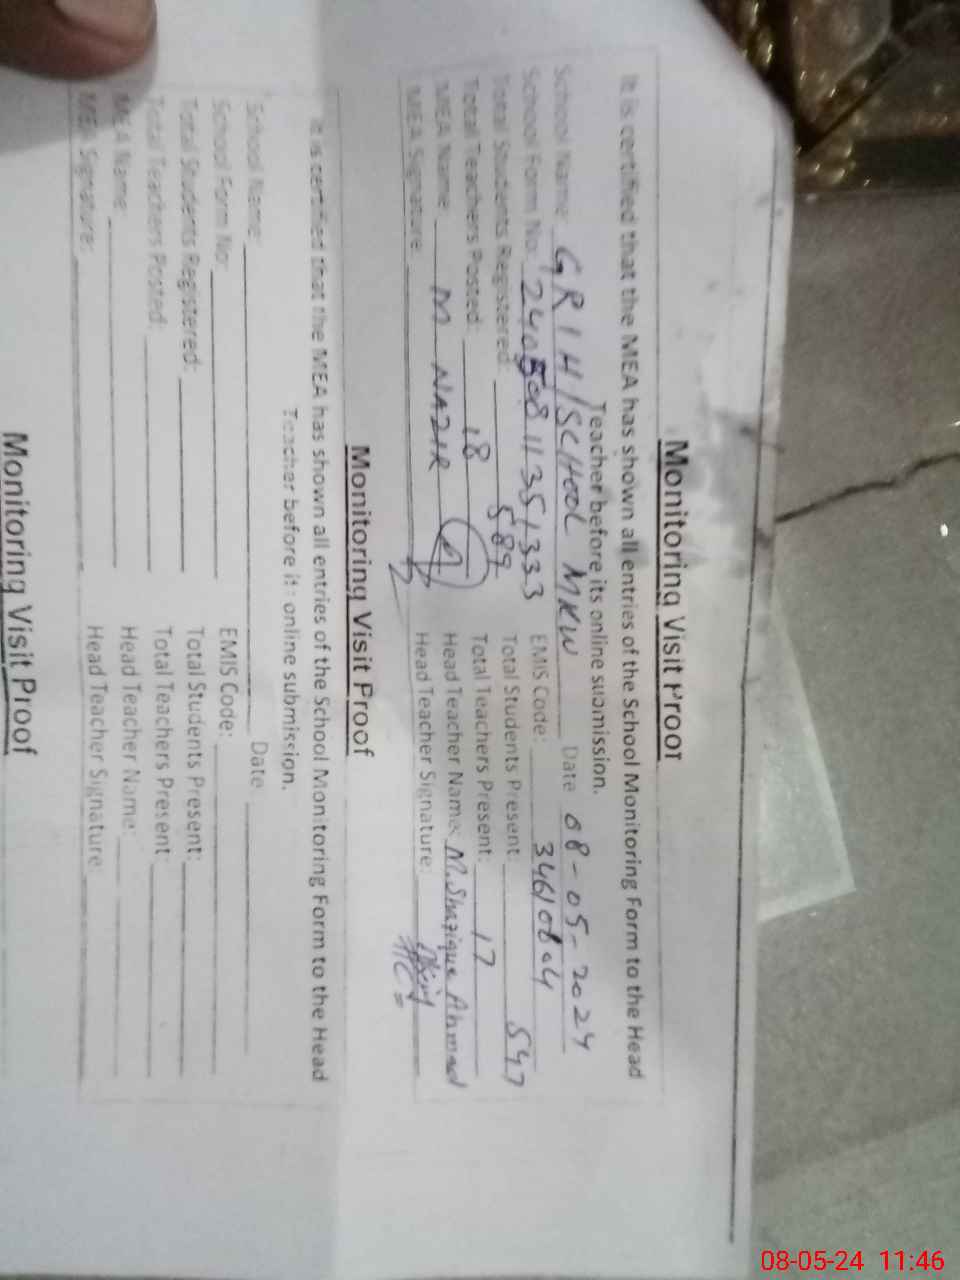 Monitoring Visit Proof
It is certified that the MEA has shown all entries of the School Monitoring Form to the Head
Teacher before its online submission.
School Name: GRIH/SCHOOL MKW Date 08-05-2024
School Form No: 24050811351333 EMIS Code: 34610804
Total Students Registered: 589 Total Students Present: 547
Total Teachers Posted: 18 Total Teachers Present: 17
MEA Name: M NAZIR Head Teacher Name: M. Shazique Ahmad
MEA Signature: Head Teacher Signature:
Monitoring Visit Proof
It is certified that the MEA has shown all entries of the School Monitoring Form to the Head
Teacher before its online submission.
School Name: Date
School Form No: EMIS Code:
Total Students Registered: Total Students Present:
Total Teachers Posted: Total Teachers Present:
MEA Name: Head Teacher Name:
MEA Signature: Head Teacher Signature:
Monitoring Visit Proof
08-05-24 11:46